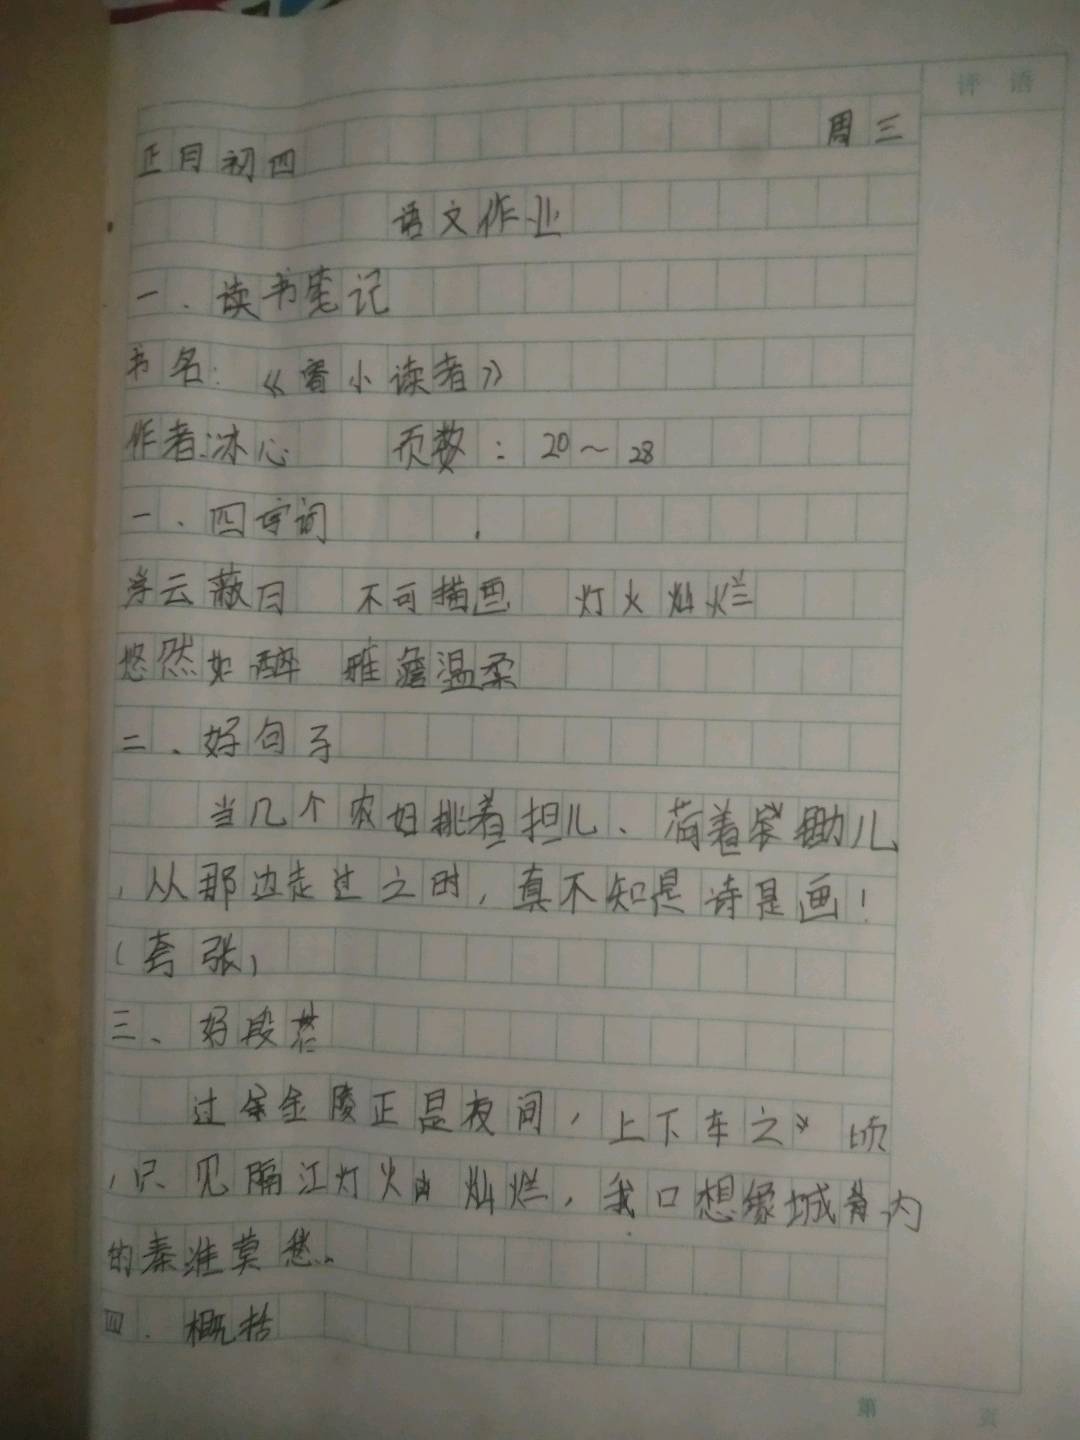 评语
正月初四 周三
语文作业
一、读书笔记
书名:《寄小读者》
作者:冰心 页数:20~28
一、四字词
浮云蔽日 不可描画 灯火灿烂
悠然如醉 雅澹温柔
二、好句子
当几个农妇挑着担儿、荷着锄儿
,从那边走过之时,真不知是诗是画!
(夸张)
三、好段落
过金陵正是夜间,上下车之顷
,只见隔江灯火灿烂,我只想象城内
的秦淮莫愁。
四、概括
第 页